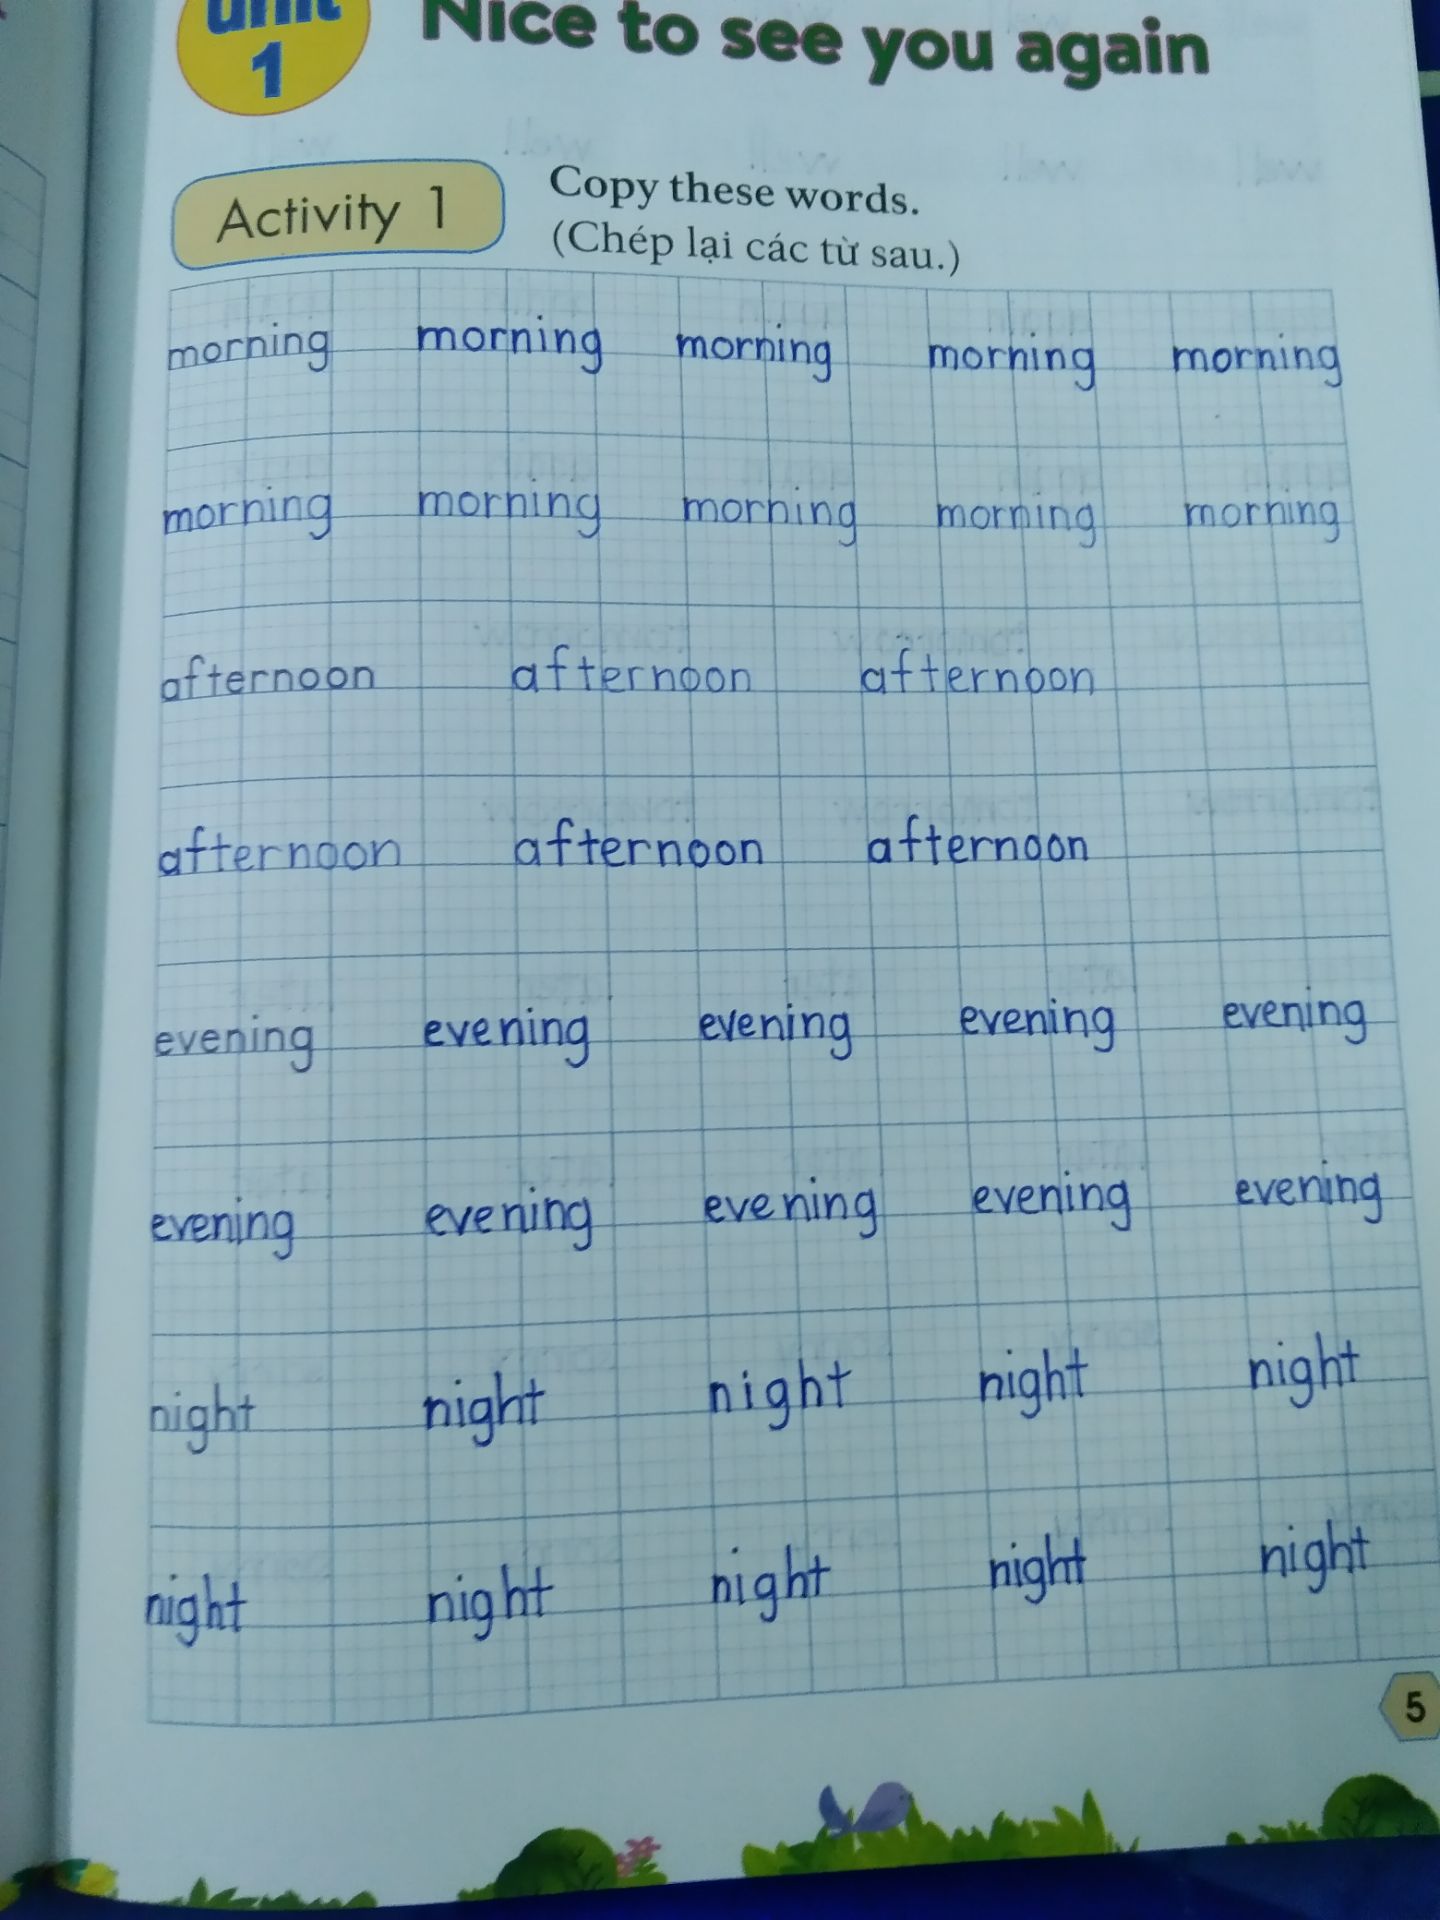 Unit
1
Nice to see you again
Activity 1
Copy these words.
(Chép lại các từ sau.)
morning morning morning morning morning
morning morning morning morning morning
afternoon afternoon afternoon
afternoon afternoon afternoon
evening evening evening evening evening
evening evening evening evening evening
night night night night night
night night night night night
5